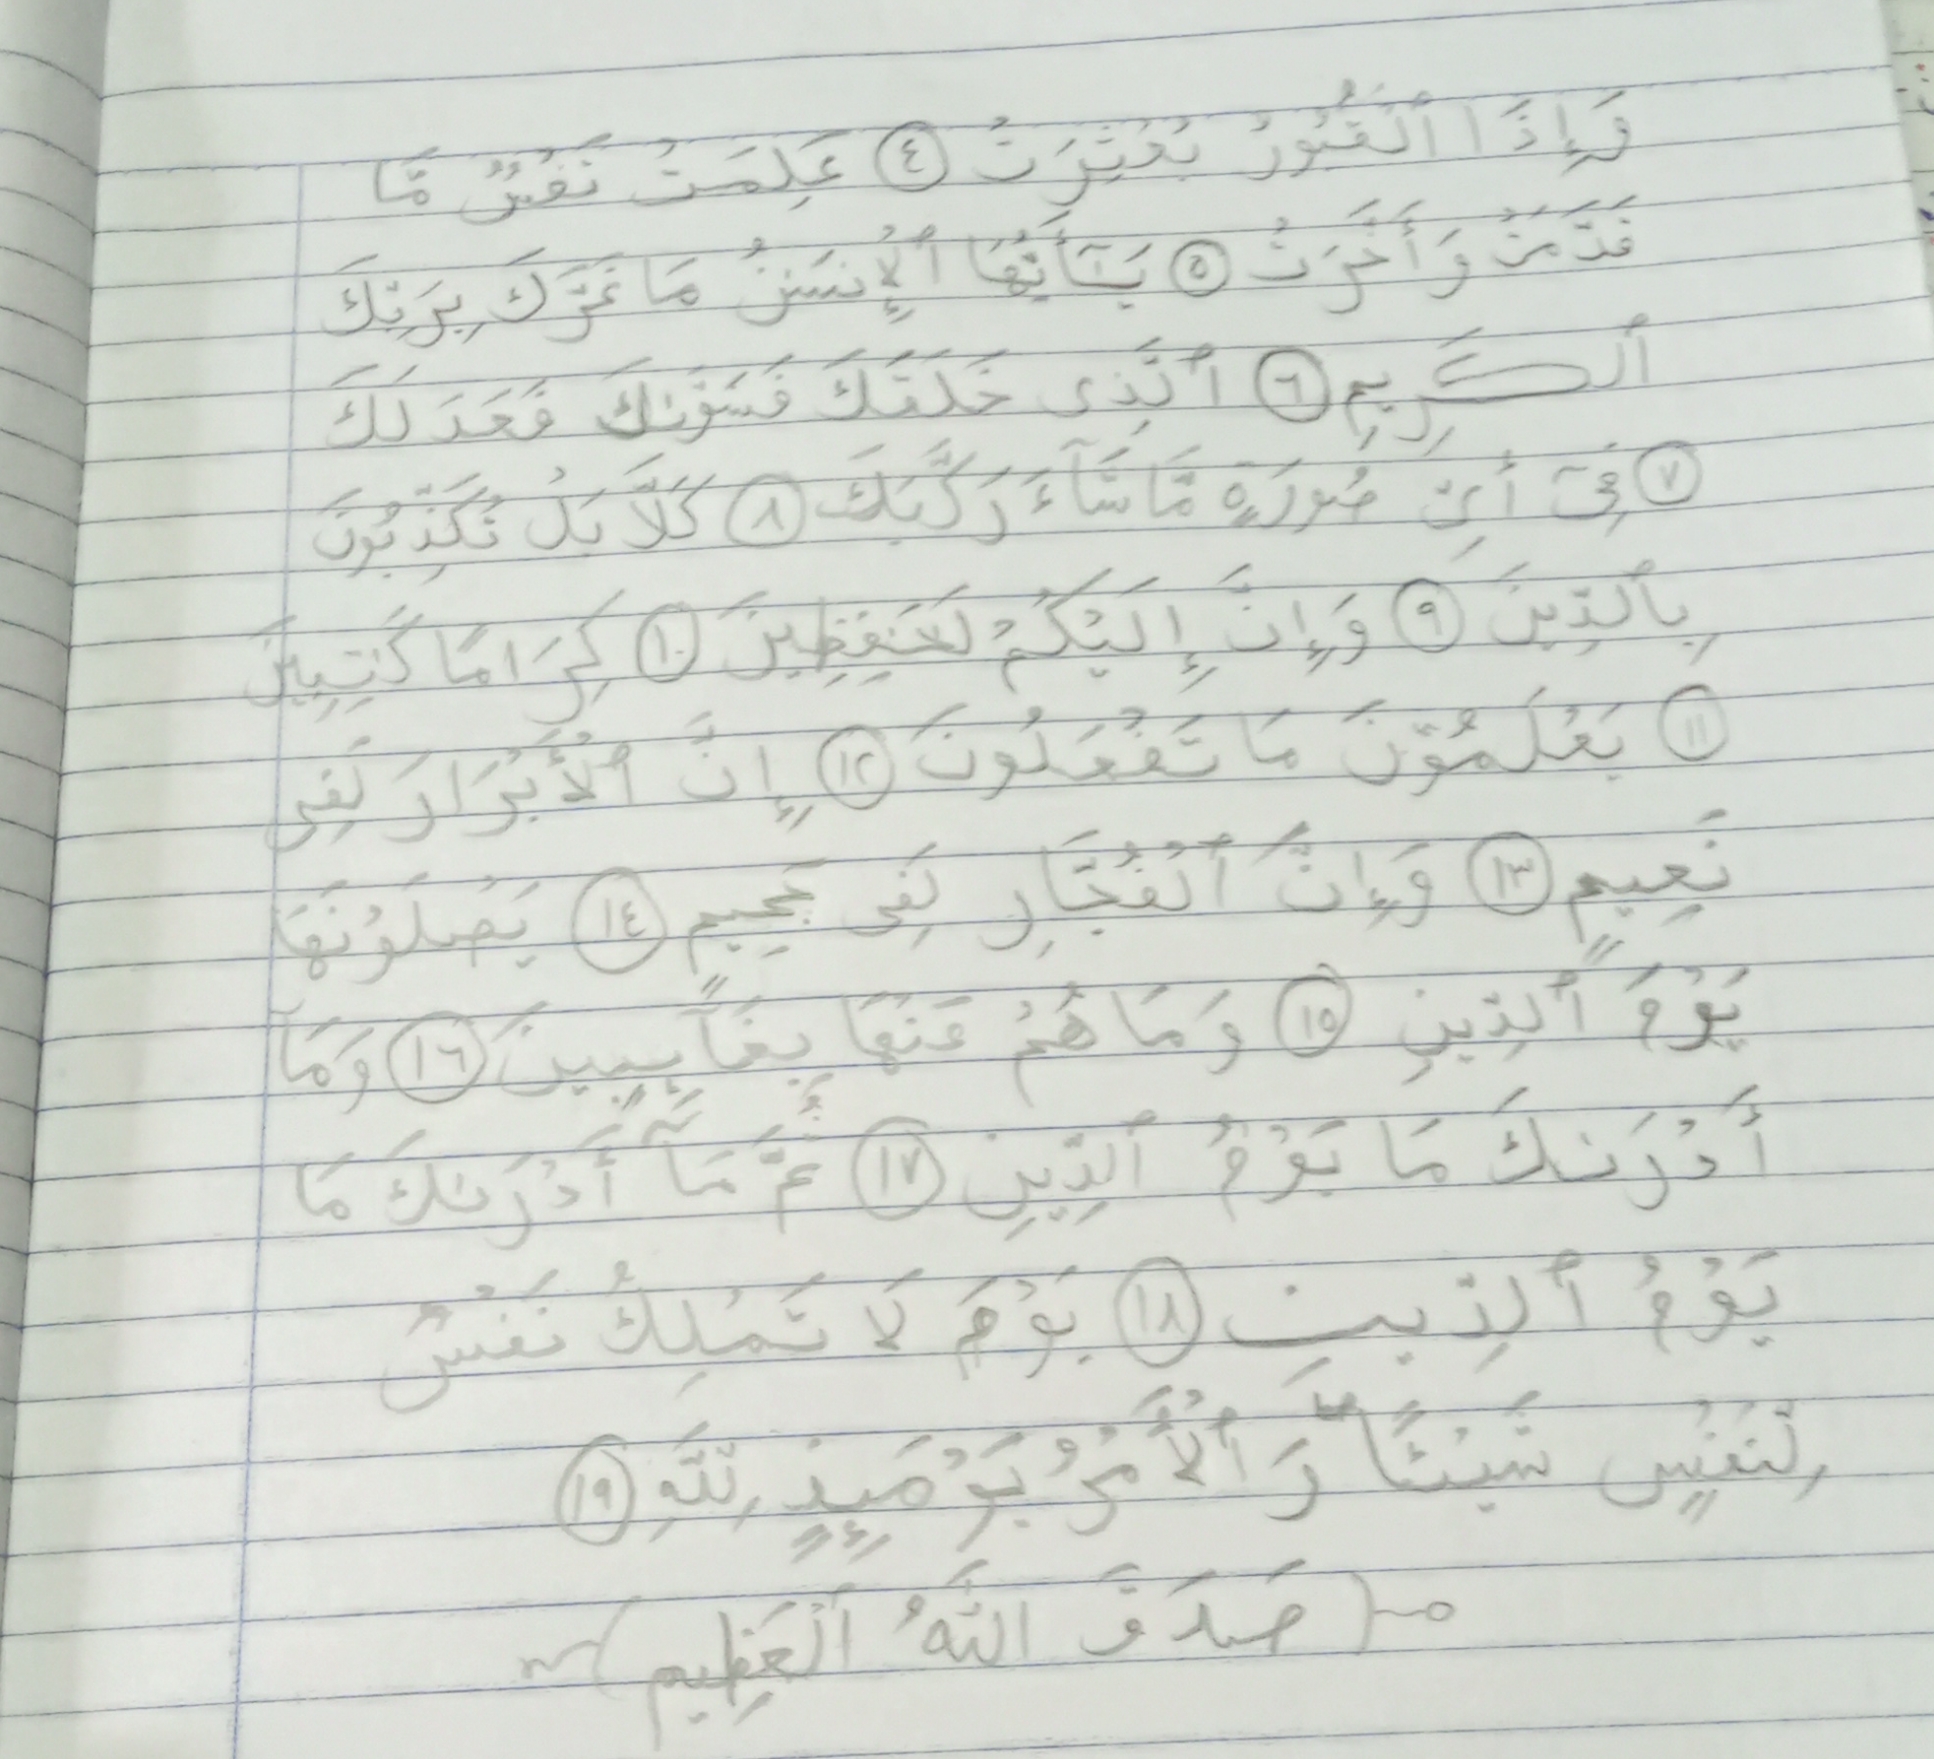 وَإِذَا ٱلْقُبُورُ بُعْثِرَتْ ٤ عَلِمَتْ نَفْسٌ مَّا
قَدَّمَتْ وَأَخَّرَتْ ٥ يَـٰٓأَيُّهَا ٱلْإِنسَـٰنُ مَا غَرَّكَ بِرَبِّكَ
ٱلْكَرِيمِ ٦ ٱلَّذِى خَلَقَكَ فَسَوَّىٰكَ فَعَدَلَكَ
٧ فِىٓ أَىِّ صُورَةٍ مَّا شَآءَ رَكَّبَكَ ٨ كَلَّا بَلْ تُكَذِّبُونَ
بِٱلدِّينِ ٩ وَإِنَّ إِلَيْكُمْ لَحَـٰفِظِينَ ١٠ كِرَامًا كَـٰتِبِينَ
١١ يَعْلَمُونَ مَا تَفْعَلُونَ ١٢ إِنَّ ٱلْأَبْرَارَ لَفِى
نَعِيمٍ ١٣ وَإِنَّ ٱلْفُجَّارَ لَفِى جَحِيمٍ ١٤ يَصْلَوْنَهَا
يَوْمَ ٱلدِّينِ ١٥ وَمَا هُمْ عَنْهَا بِغَآئِبِينَ ١٦ وَمَآ
أَدْرَىٰكَ مَا يَوْمُ ٱلدِّينِ ١٧ ثُمَّ مَآ أَدْرَىٰكَ مَا
يَوْمُ ٱلدِّينِ ١٨ يَوْمَ لَا تَمْلِكُ نَفْسٌ
لِّنَفْسٍ شَيْـًٔا ۖ وَٱلْأَمْرُ يَوْمَئِذٍ لِّلَّهِ ١٩
(صَدَقَ اللَّهُ ٱلْعَظِيم)